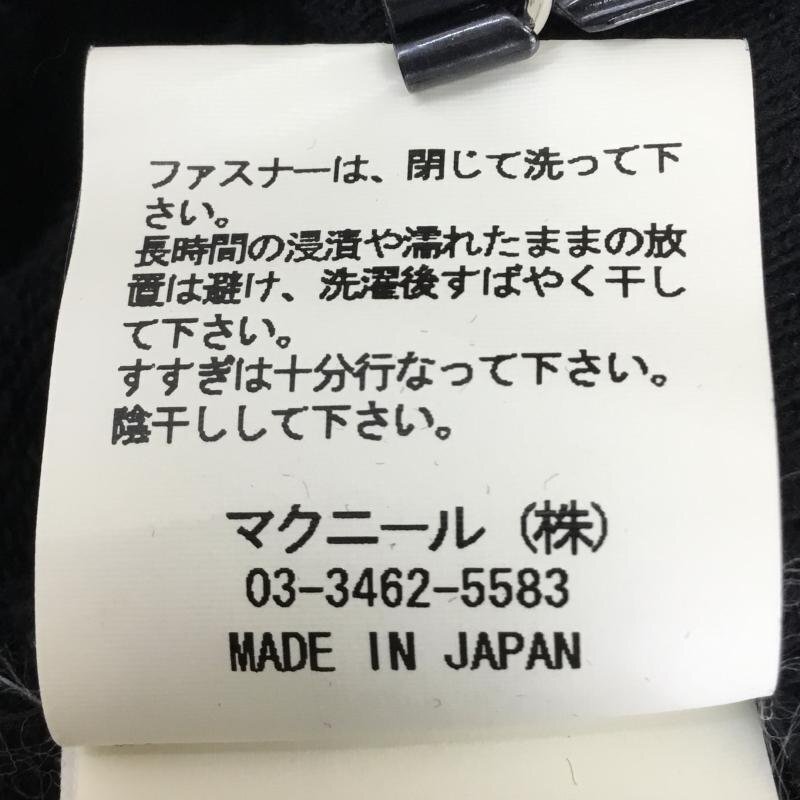 ファスナーは、閉じて洗って下
さい。
長時間の浸漬や濡れたままの放
置は避け、洗濯後すばやく干し
て下さい。
すすぎは十分行なって下さい。
陰干しして下さい。
マクニール（株）
03-3462-5583
MADE IN JAPAN